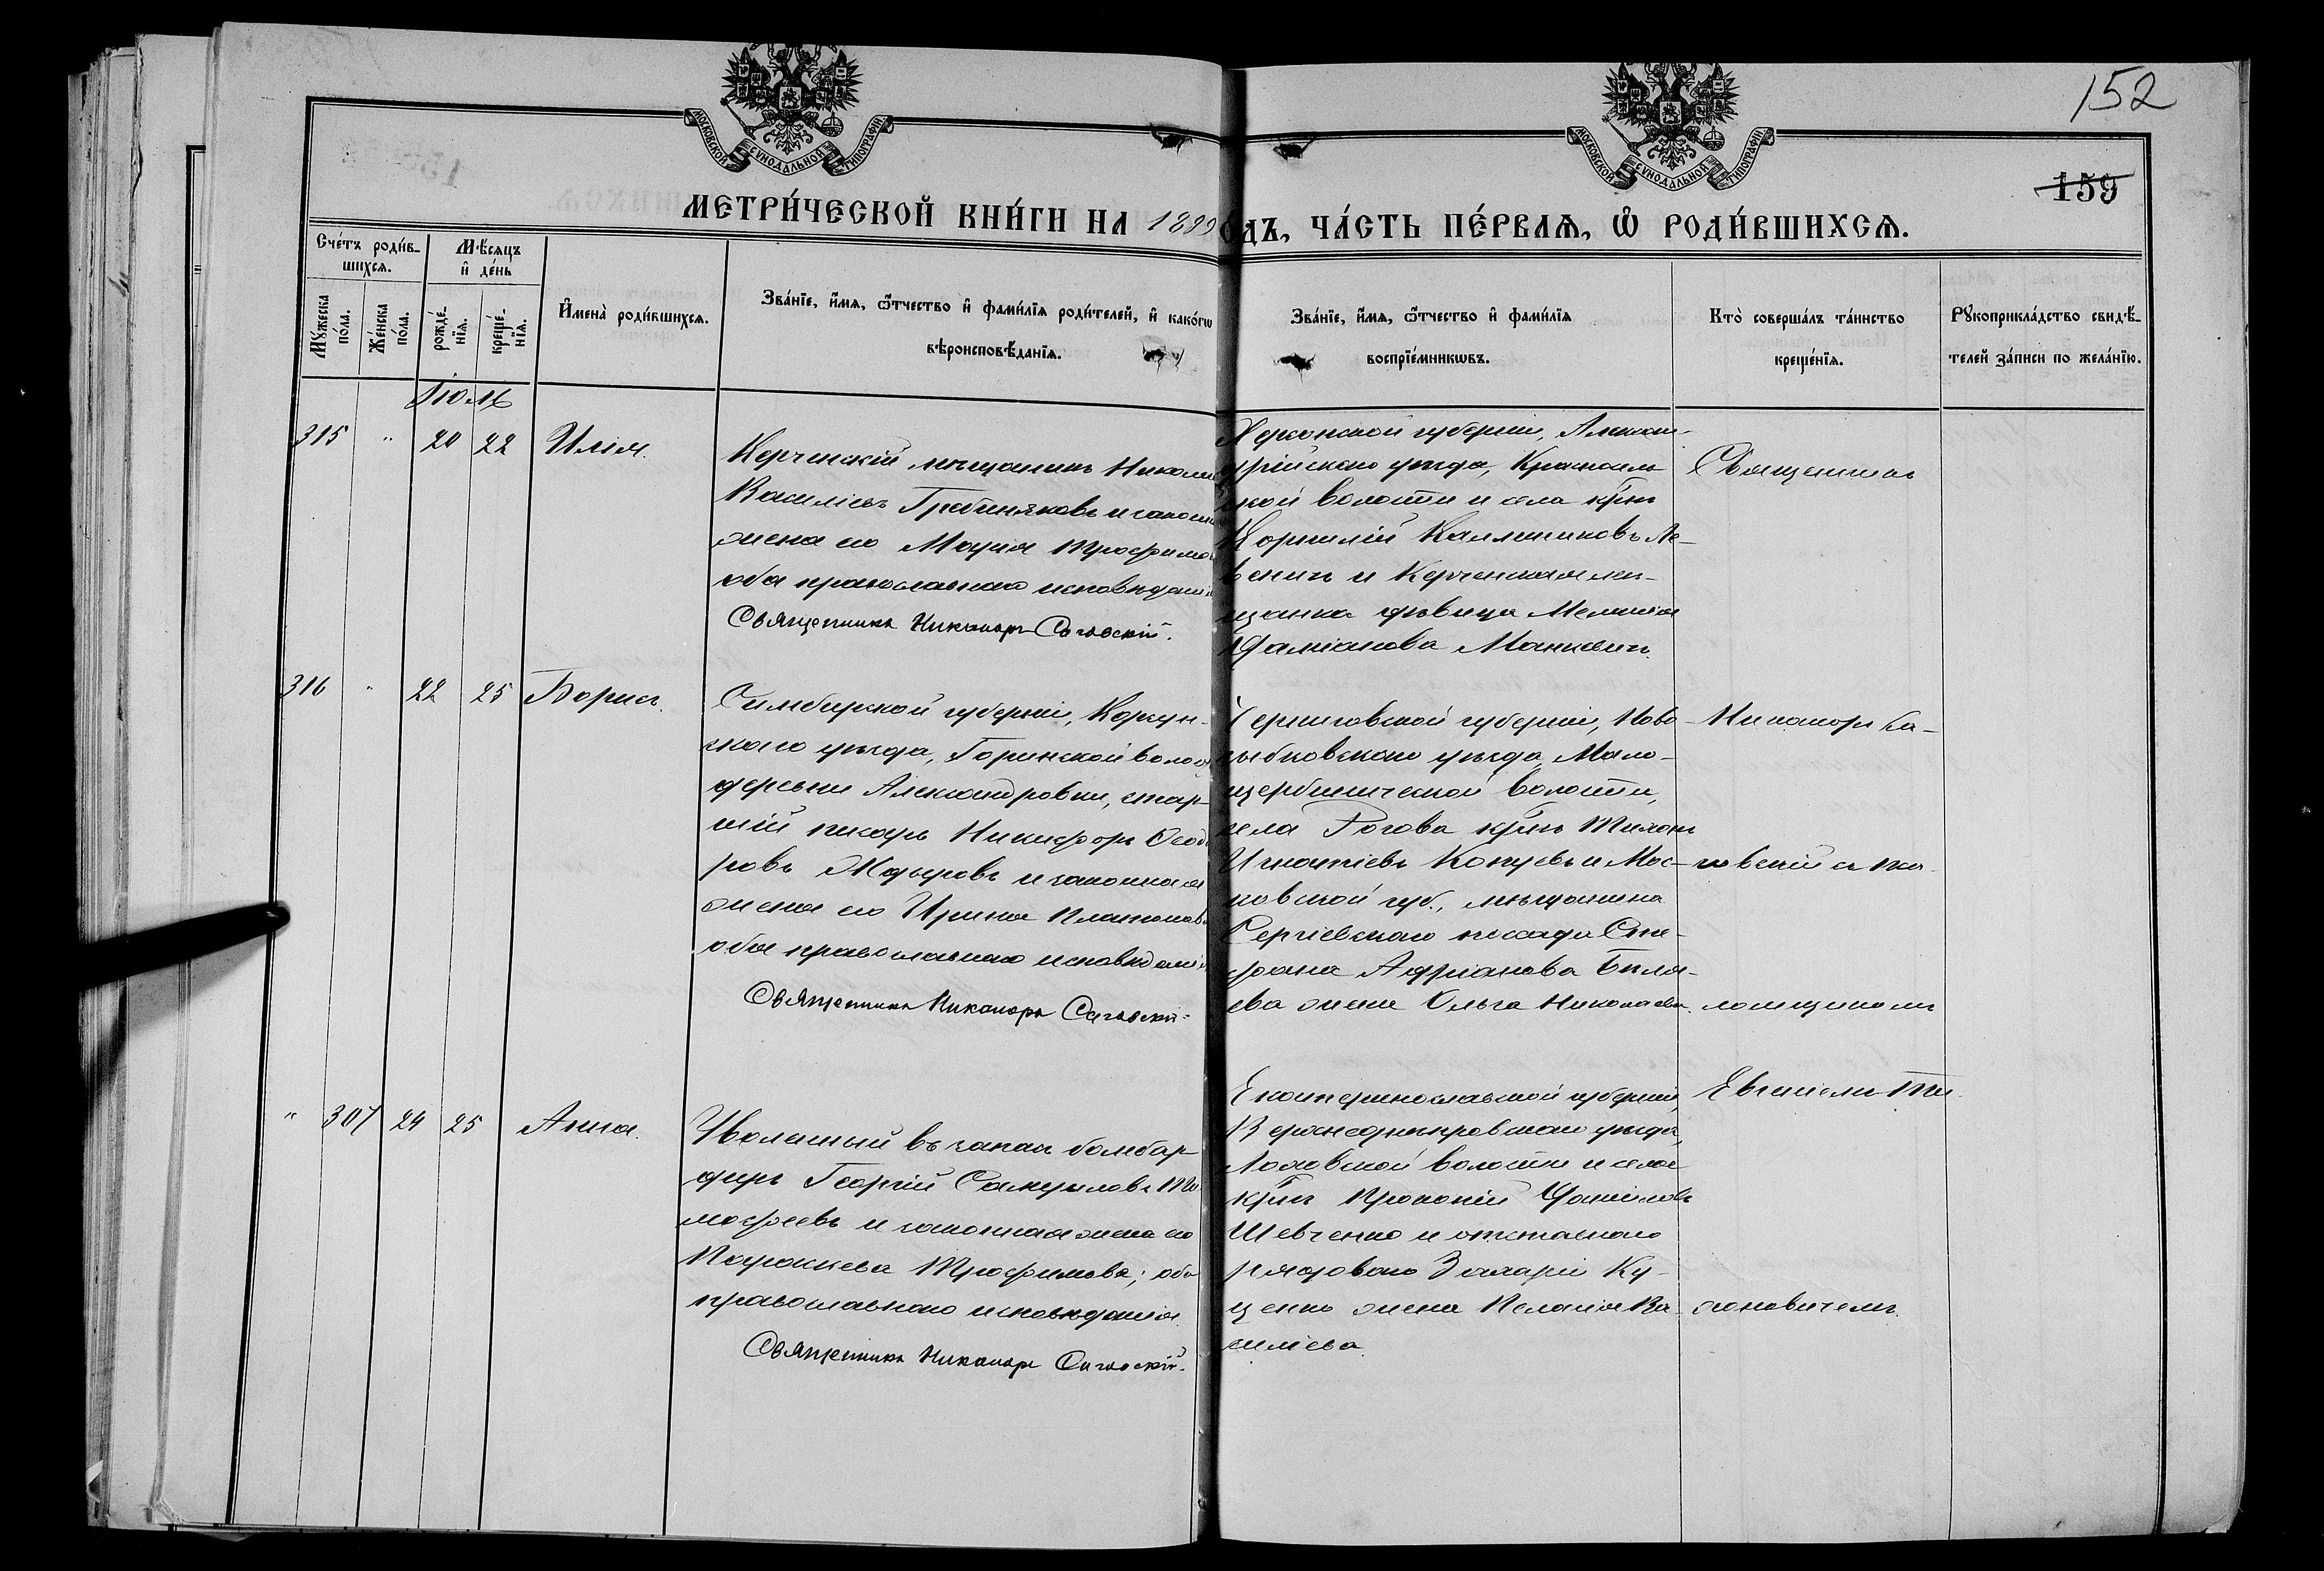 152
159
МОСКОВСКОЙ СѴНОДАЛЬНОЙ ТИПОГРАФІИ
МОСКОВСКОЙ СѴНОДАЛЬНОЙ ТИПОГРАФІИ
МЕТРИ́ЧЕСКОЙ КНИ́ГИ НА 1899 ОДЪ, ЧА́СТЬ ПЕ́РВАѦ, Ѡ҆ РОДИ́ВШИХСѦ.
Сче́тъ роди́в-
шихсѧ.
Мѣ́сяцъ
и҆ де́нь
Мꙋ́жеска по́ла.
Же́нска по́ла.
рожде́-нїѧ.
креще́-нїѧ.
И҆мена̀ роди́вшихсѧ.
Зва́нїе, и҆́мѧ, ѻ҆́тчество и҆ фами́лїѧ роди́телей, и҆ како́гѡ
вѣроисповѣ́данїѧ.
Зва́нїе, и҆́мѧ, ѻ҆́тчество и҆ фами́лїѧ
воспрїе́мникѡвъ.
Кто̀ соверша́лъ та́инство
креще́нїѧ.
Рꙋкоприкла́дство свидѣ́-
телей за́писи по жела́нїю.
Іюль
315 " 20 22 Илія.
Керченскій мѣщанинъ Николай
Василіевъ Гребиняковъ и законная
жена его Марія Трофимова
оба православнаго исповѣданія
Священникъ Никаноръ Саговскій.
Херсонской губерніи, Алексан-
дрійскаго уѣзда,
ской волости и села крнъ
Корнилій Каллиниковъ Ле-
венецъ и Керченская мѣ-
щанка дѣвица Меланія
Даміанова Манкевичъ.
Священникъ
316 " 22 25 Борисъ.
Симбирской губерніи, Корсун-
скаго уѣзда, Горинской волости
деревни Александровки, стар-
шій писарь Никифоръ Ѳеодо
ровъ Ждыровъ и законная
жена его Ирина Платонова
оба православнаго исповѣданія
Священникъ Никаноръ Саговскій.
Черниговской губерніи, Ново-
зыбковскаго уѣзда, Мало-
щербиничской волости,
села Рогова крнъ Тихонъ
Игнатіевъ Копуевъ и Мос-
ковской губ., мѣщанина
Сергіевскаго посада Сте-
фана Адріанова Бѣля-
ева жена Ольга Николаева.
Никаноръ Са-
говскій съ пса-
ломщикомъ
" 307 24 25 Анна.
Уволенный въ запасъ бомбар
диръ Георгій Самуиловъ Ти
мофеевъ и законная жена его
Параскева Трофимова; оба
православнаго исповѣданія.
Священникъ Никаноръ Саговскій.
Екатеринославской губерніи,
Верхнеднѣпровскаго уѣзда,
волости и села
крнъ Прокопій Даніиловъ
Шевченко и отставного
рядоваго Захаріи Ку-
ценко жена Пелагія Ва
силіева.
Евгеніемъ Ти
моновичемъ.